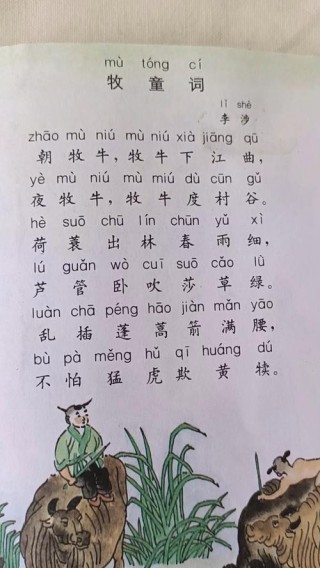 mù tóng cí
牧 童 词
lǐ shè
李 涉
zhāo mù niú mù niú xià jiāng qū
朝 牧 牛，牧 牛 下 江 曲，
yè mù niú mù miú dù cūn gǔ
夜 牧 牛，牧 牛 度 村 谷。
hè suō chū lín chūn yǔ xì
荷 蓑 出 林 春 雨 细，
lú guǎn wò cuī suō cǎo lǜ
芦 管 卧 吹 莎 草 绿。
luàn chā péng hāo jiàn mǎn yāo
乱 插 蓬 蒿 箭 满 腰，
bù pà měng hǔ qī huáng dú
不 怕 猛 虎 欺 黄 犊。